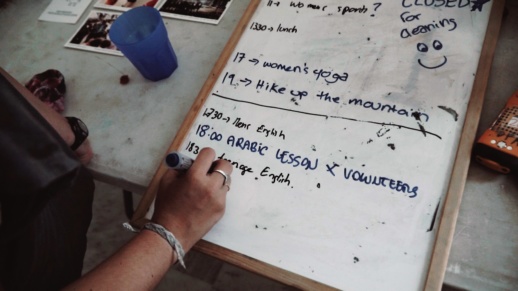 women sports?
CLOSED
for
cleaning
1330 → lunch
17 → women's yoga
19 → Hike up the mountain
1730 → Men English
18:00 ARABIC LESSON X VOLUNTEERS
English